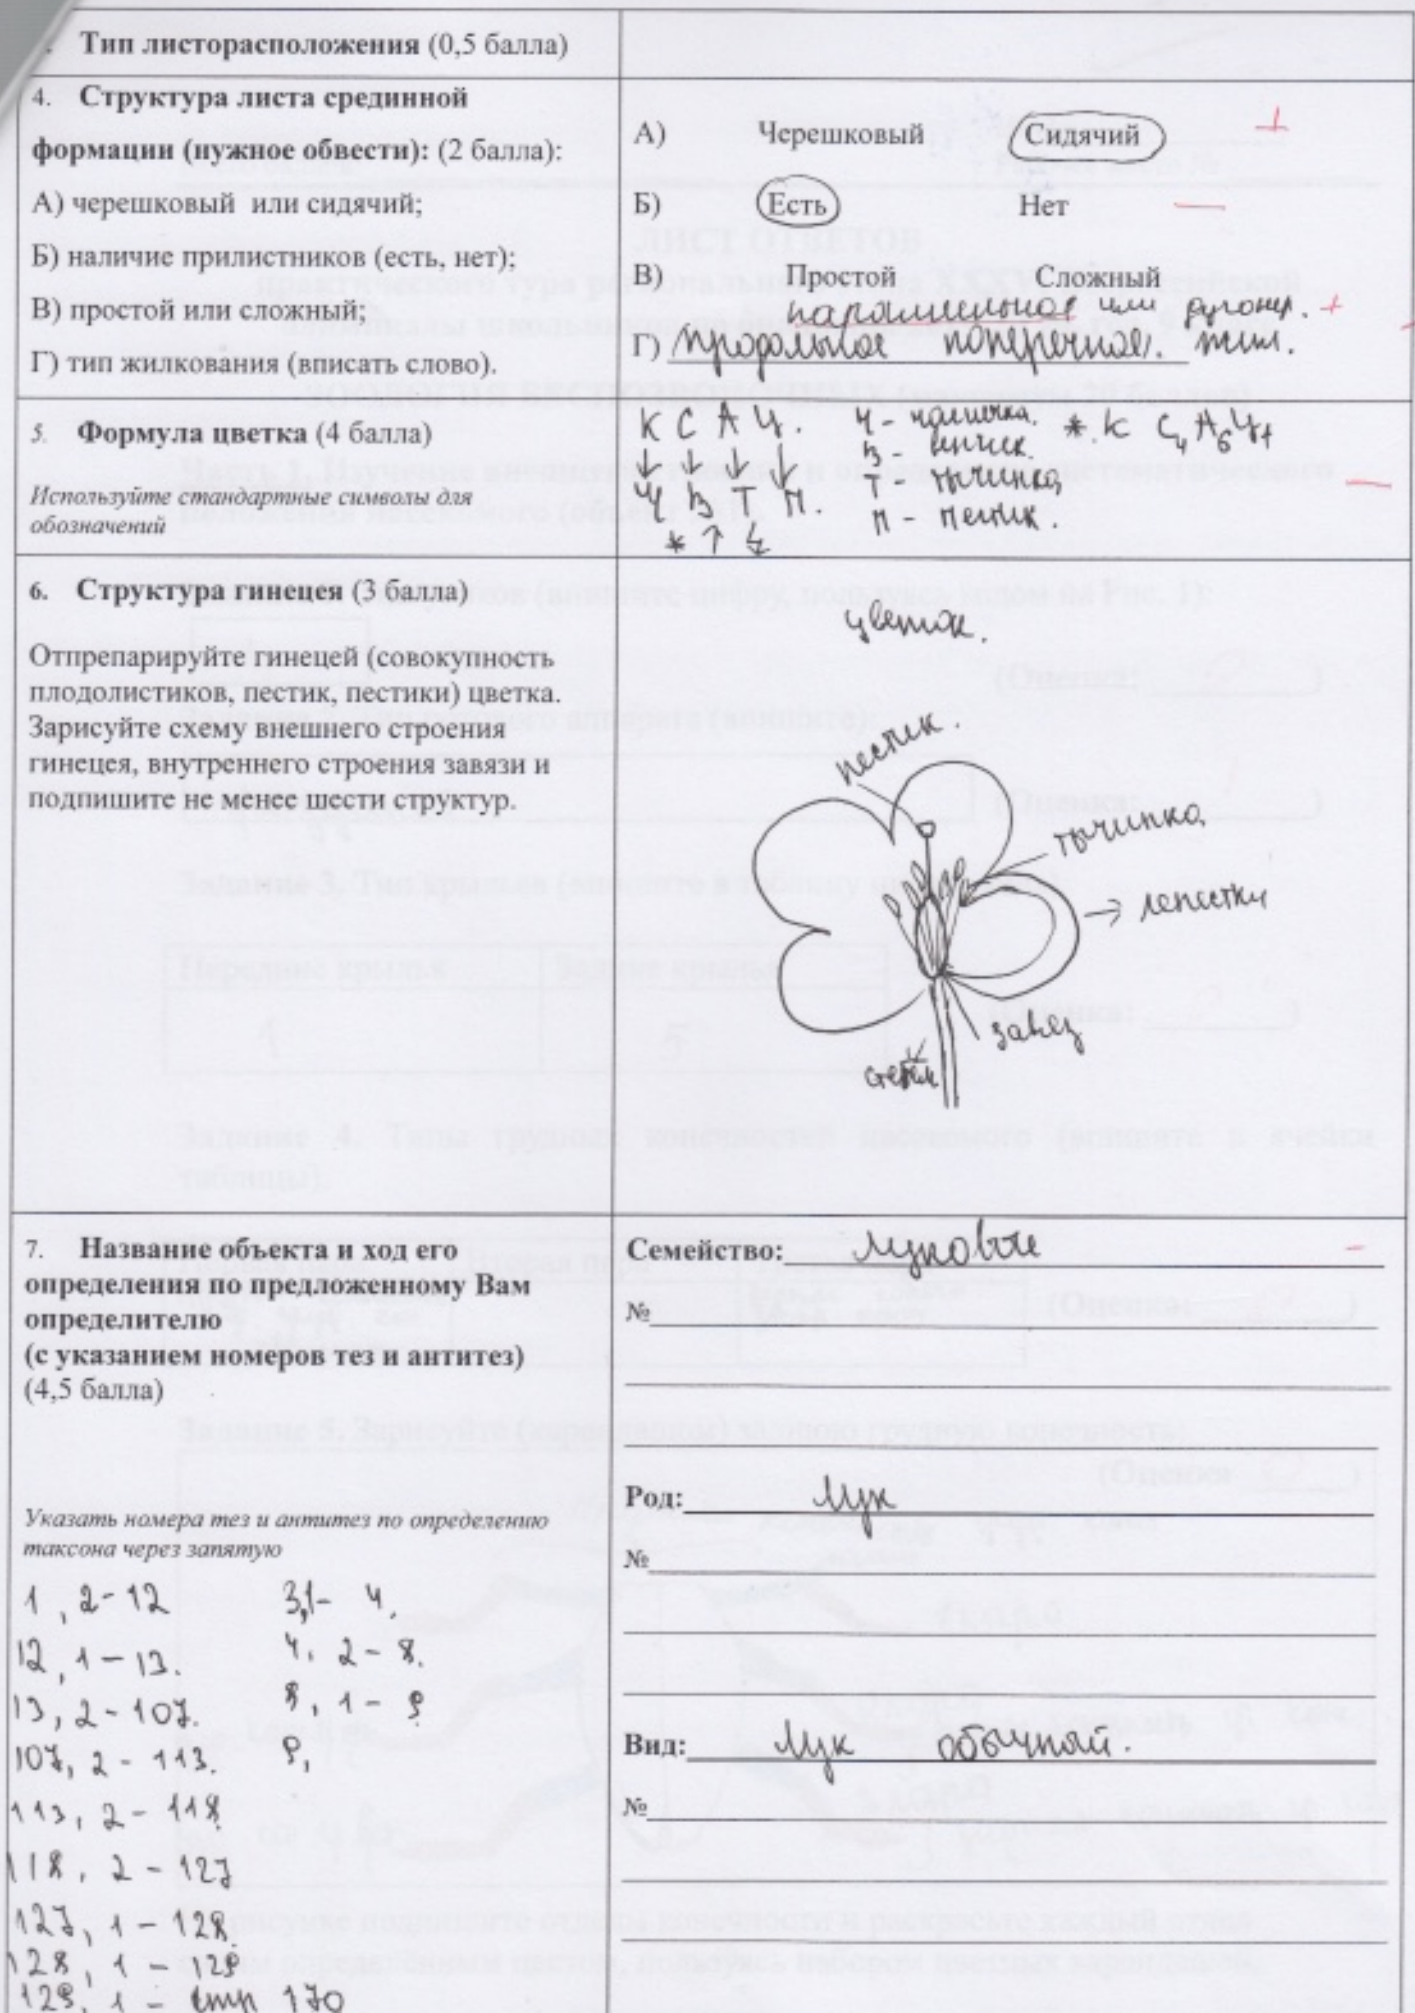 Тип листорасположения (0,5 балла)
4. Структура листа срединной
формации (нужное обвести): (2 балла):
А) черешковый или сидячий;
Б) наличие прилистников (есть, нет);
В) простой или сложный;
Г) тип жилкования (вписать слово).
А) Черешковый Сидячий +
Б) Есть Нет —
В) Простой Сложный
параллельное или +
Г) продольное поперечное. жил.
5. Формула цветка (4 балла)
Используйте стандартные символы для
обозначений
К С А Ц. Ч - чашечка. * К С4 А6 Ц1
↓ ↓ ↓ ↓ В - венчик.
Ч В Т П. Т - тычинка —
* ↑ П - пестик.
6. Структура гинецея (3 балла)
Отпрепарируйте гинецей (совокупность
плодолистиков, пестик, пестики) цветка.
Зарисуйте схему внешнего строения
гинецея, внутреннего строения завязи и
подпишите не менее шести структур.
цветок.
пестик.
тычинка
→ лепестки
завяз
7. Название объекта и ход его
определения по предложенному Вам
определителю
(с указанием номеров тез и антитез)
(4,5 балла)
Указать номера тез и антитез по определению
таксона через запятую
1, 2-12 3,1- 4.
12, 1-13. 4, 2-8.
13, 2-107. 8, 1-9
107, 2-113. 9,
113, 2-118
118, 2-127
127, 1-128.
128, 1-129
129, 1- стр 170
Семейство: Луковые -
№
Род: Лук
№
Вид: Лук обычный.
№